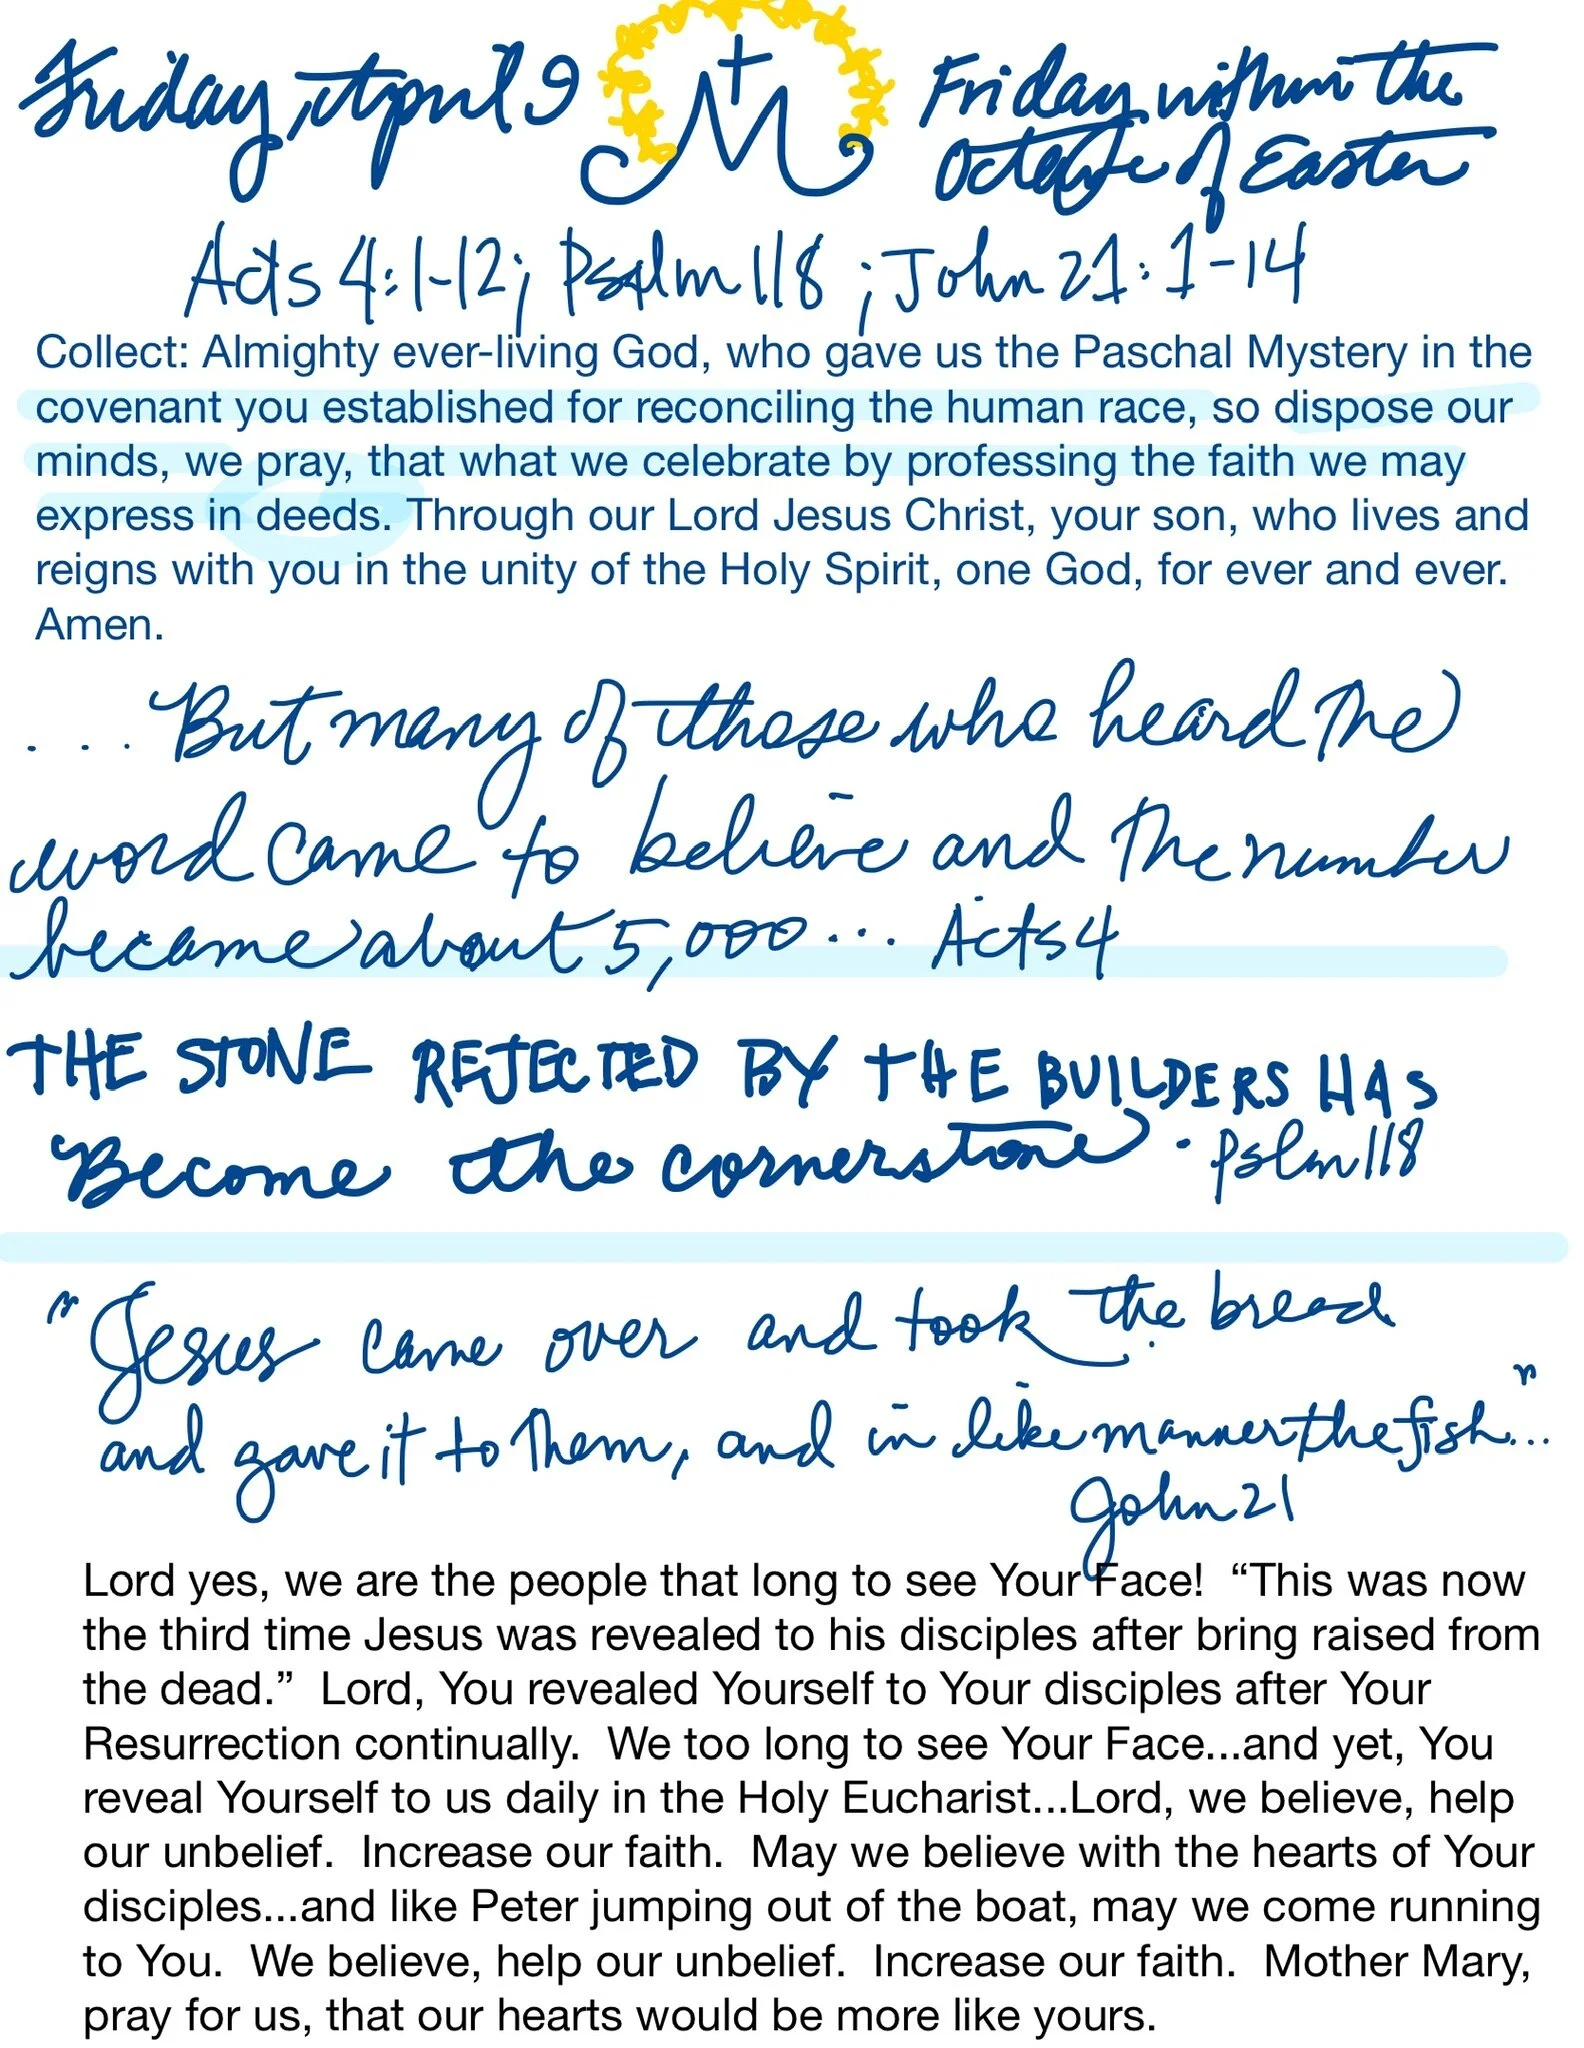 Friday, April 9
Friday within the
Octave of Easter
Acts 4:1-12; Psalm 118; John 21:1-14
Collect: Almighty ever-living God, who gave us the Paschal Mystery in the
covenant you established for reconciling the human race, so dispose our
minds, we pray, that what we celebrate by professing the faith we may
express in deeds. Through our Lord Jesus Christ, your son, who lives and
reigns with you in the unity of the Holy Spirit, one God, for ever and ever.
Amen.
... But many of those who heard the
word came to believe and the number
became about 5,000... Acts 4
THE STONE REJECTED BY THE BUILDERS HAS
Become the cornerstone. Pslm 118
"Jesus came over and took the bread
and gave it to them, and in like manner the fish..."
John 21
Lord yes, we are the people that long to see Your Face!  “This was now
the third time Jesus was revealed to his disciples after bring raised from
the dead.”  Lord, You revealed Yourself to Your disciples after Your
Resurrection continually.  We too long to see Your Face...and yet, You
reveal Yourself to us daily in the Holy Eucharist...Lord, we believe, help
our unbelief.  Increase our faith.  May we believe with the hearts of Your
disciples...and like Peter jumping out of the boat, may we come running
to You.  We believe, help our unbelief.  Increase our faith.  Mother Mary,
pray for us, that our hearts would be more like yours.